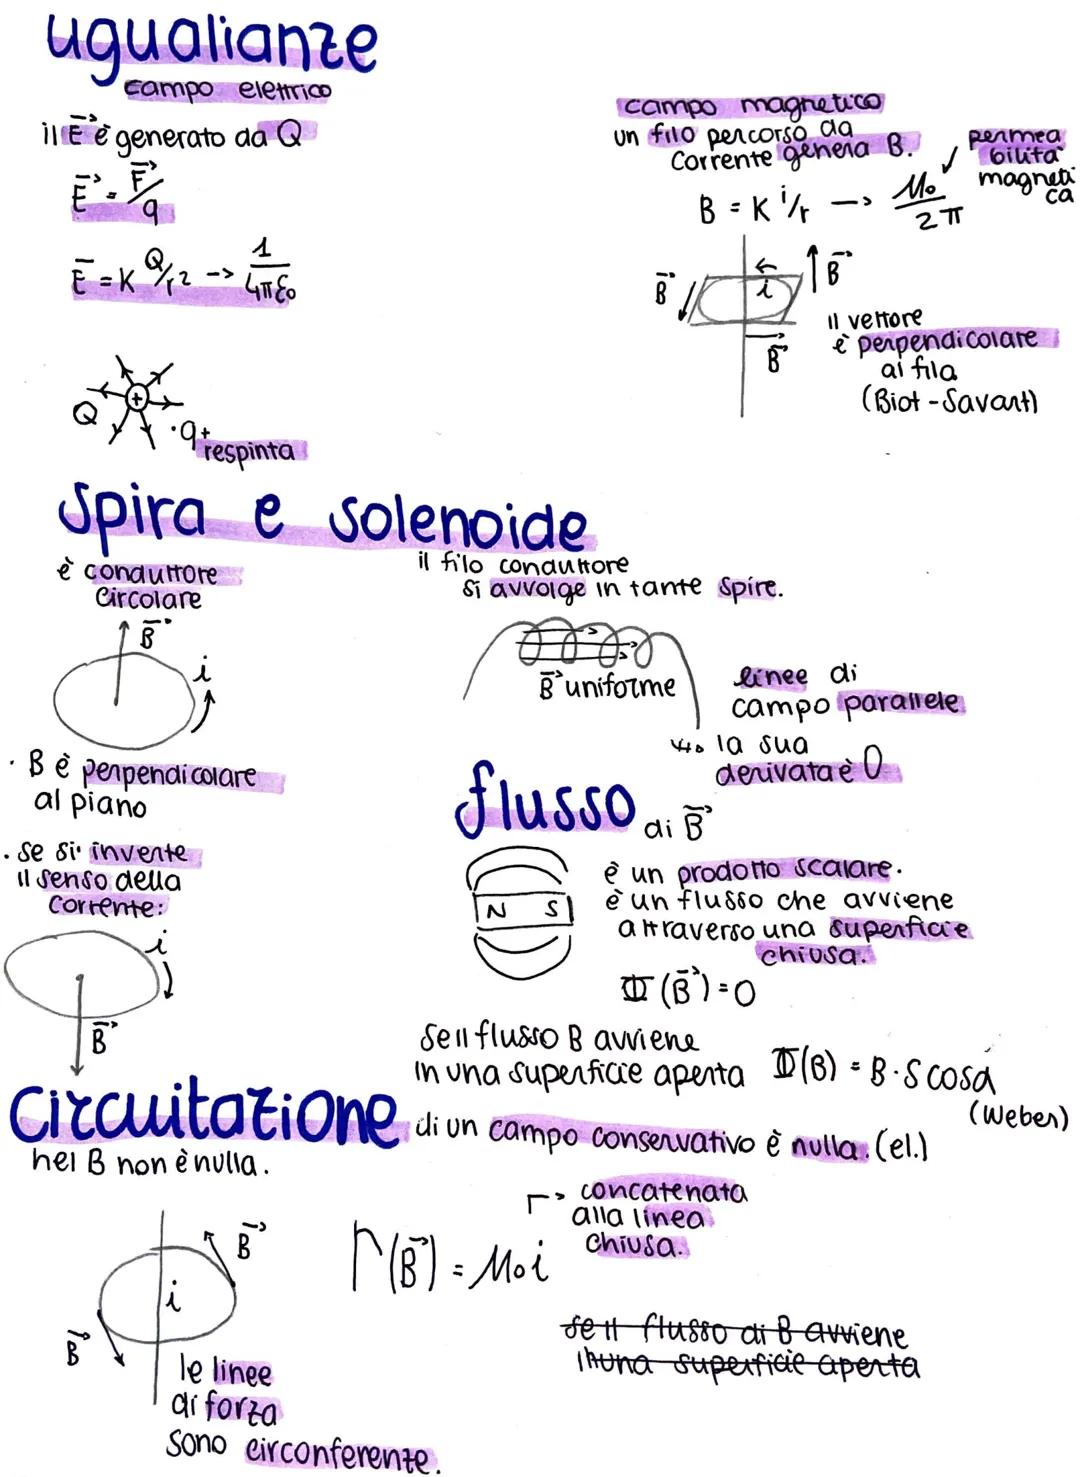 ugualianze
campo elettrico
il E è generato da Q
E = F/q
E = K Q/r² -> 1/4πε₀
Q
+
· q+
respinta
campo magnetico
un filo percorso da
corrente genera B.
permea
bilità
magneti
ca
B = K i/r -> μ₀/2π
B
i
B
B
il vettore
è perpendicolare
al fila
(Biot-Savart)
spira e solenoide
è conduttore
circolare
B
i
· B è perpendicolare
al piano
· se si inverte
il senso della
corrente:
i
B
il filo conduttore
si avvolge in tante spire.
B uniforme
linee di
campo parallele
la sua
derivata è 0
flusso di B
N S
è un prodotto scalare.
è un flusso che avviene
attraverso una superficie
chiusa.
Φ(B) = 0
Se il flusso B avviene
in una superficie aperta Φ(B) = B·S cosα
(Weber)
Circuitazione di un campo conservativo è nulla. (el.)
nel B non è nulla.
B
i
B
le linee
di forza
sono circonferenze.
Γ(B) = μ₀i
concatenata
alla linea
chiusa.
se il flusso di B avviene
in una superficie aperta